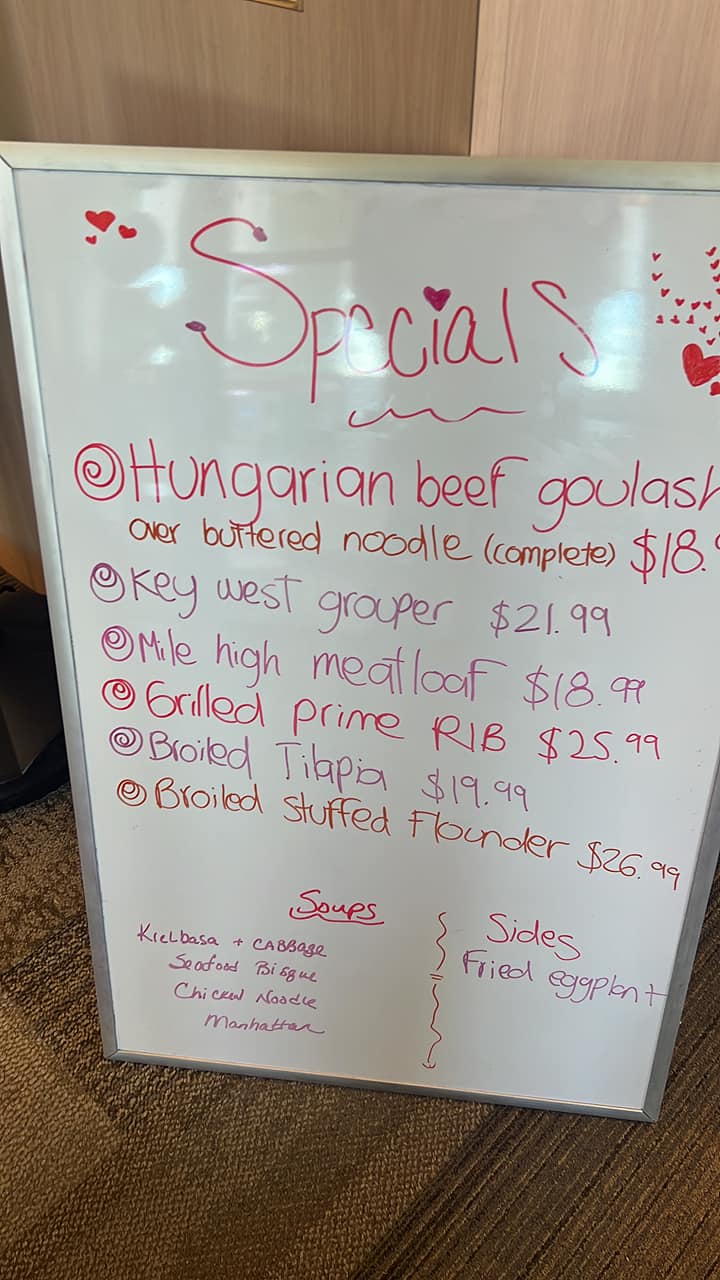 Specials
Hungarian beef goulash
over buttered noodle (complete) $18.
Key west grouper $21.99
Mile high meatloaf $18.99
Grilled prime RIB $25.99
Broiled Tilapia $19.99
Broiled stuffed Flounder $26.99
Soups
Kielbasa + CABBage
Seafood Bisque
Chicken Noodle
Manhattan
Sides
Fried eggplant